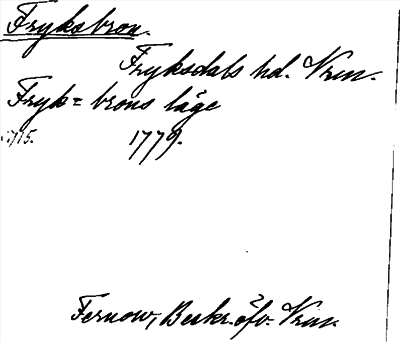 Fryksbron.
Fryksdals hd. Vrm.
Fryk= brons läge
1779.
Fernow, Beskr. öfv. Vrm.